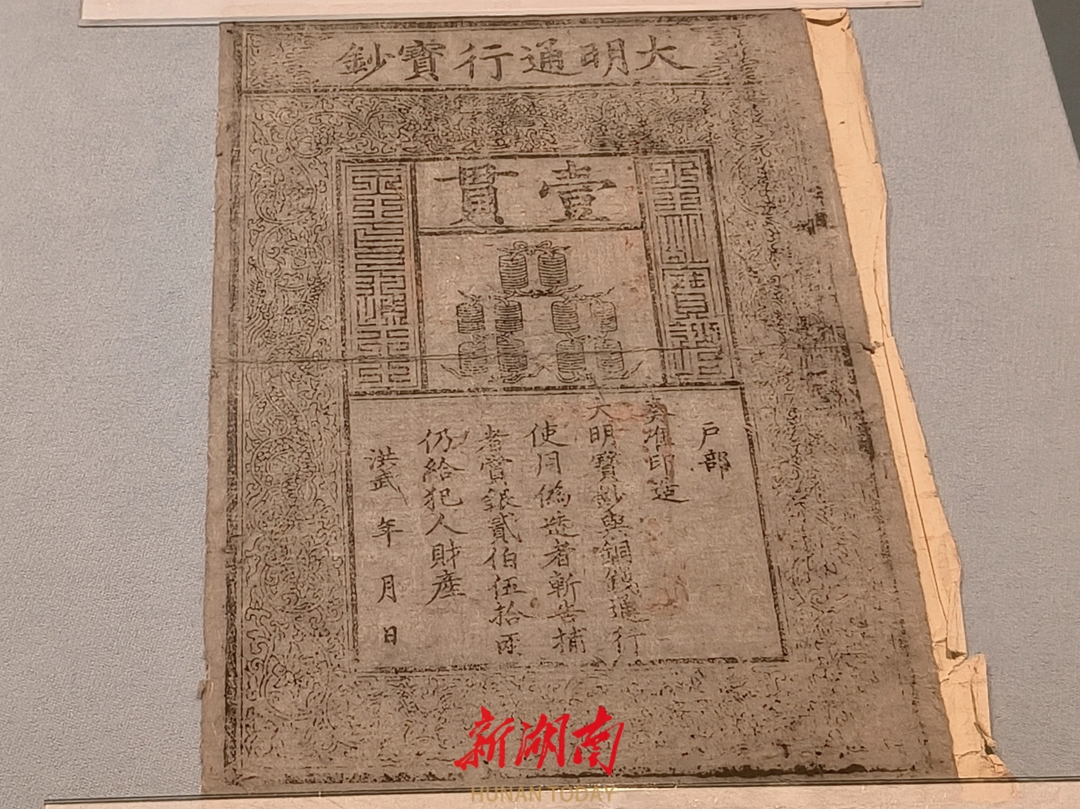 大明通行寶鈔
壹貫
大明寶鈔
天下通行
戶部
奏准印造
大明寶鈔與銅錢通行
使用僞造者斬告捕
者賞銀貳伯伍拾兩
仍給犯人財產
洪武 年 月 日
新湖南
HUNAN TODAY